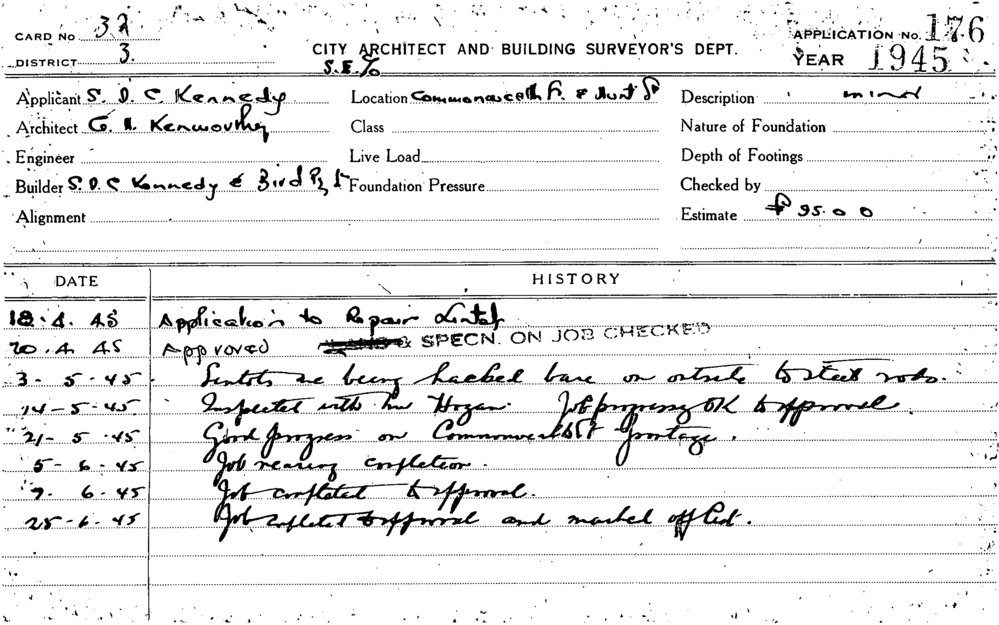 CARD No 32
DISTRICT 3.
CITY ARCHITECT AND BUILDING SURVEYOR'S DEPT.
APPLICATION No. 176
YEAR 1945
Applicant S. D. C. Kennedy
Location Commonwealth St. & Hunt St
Description minor
Architect G. N. Kenworthy
Class
Nature of Foundation
Engineer
Live Load
Depth of Footings
Builder S. D. C Kennedy & Bird Pty Lt
Foundation Pressure
Checked by
Alignment
Estimate £ 95.0 0
DATE HISTORY
18. 4. 45 Application to Repair Lintels
20. 4 45 Approved & SPECN. ON JOB CHECKED
3 - 5 - 45 Lintols are being hacked bare on outside to steel rods.
14 - 5 - 45 Inspected with Mr Hogan. Job progressg OK to approval.
21 - 5 - 45 Good progress on Commonwealth St frontage.
5 - 6 - 45 Job nearing completion.
7. 6. 45 Job completed to approval.
25 - 6. 45 Job completed to approval and marked off